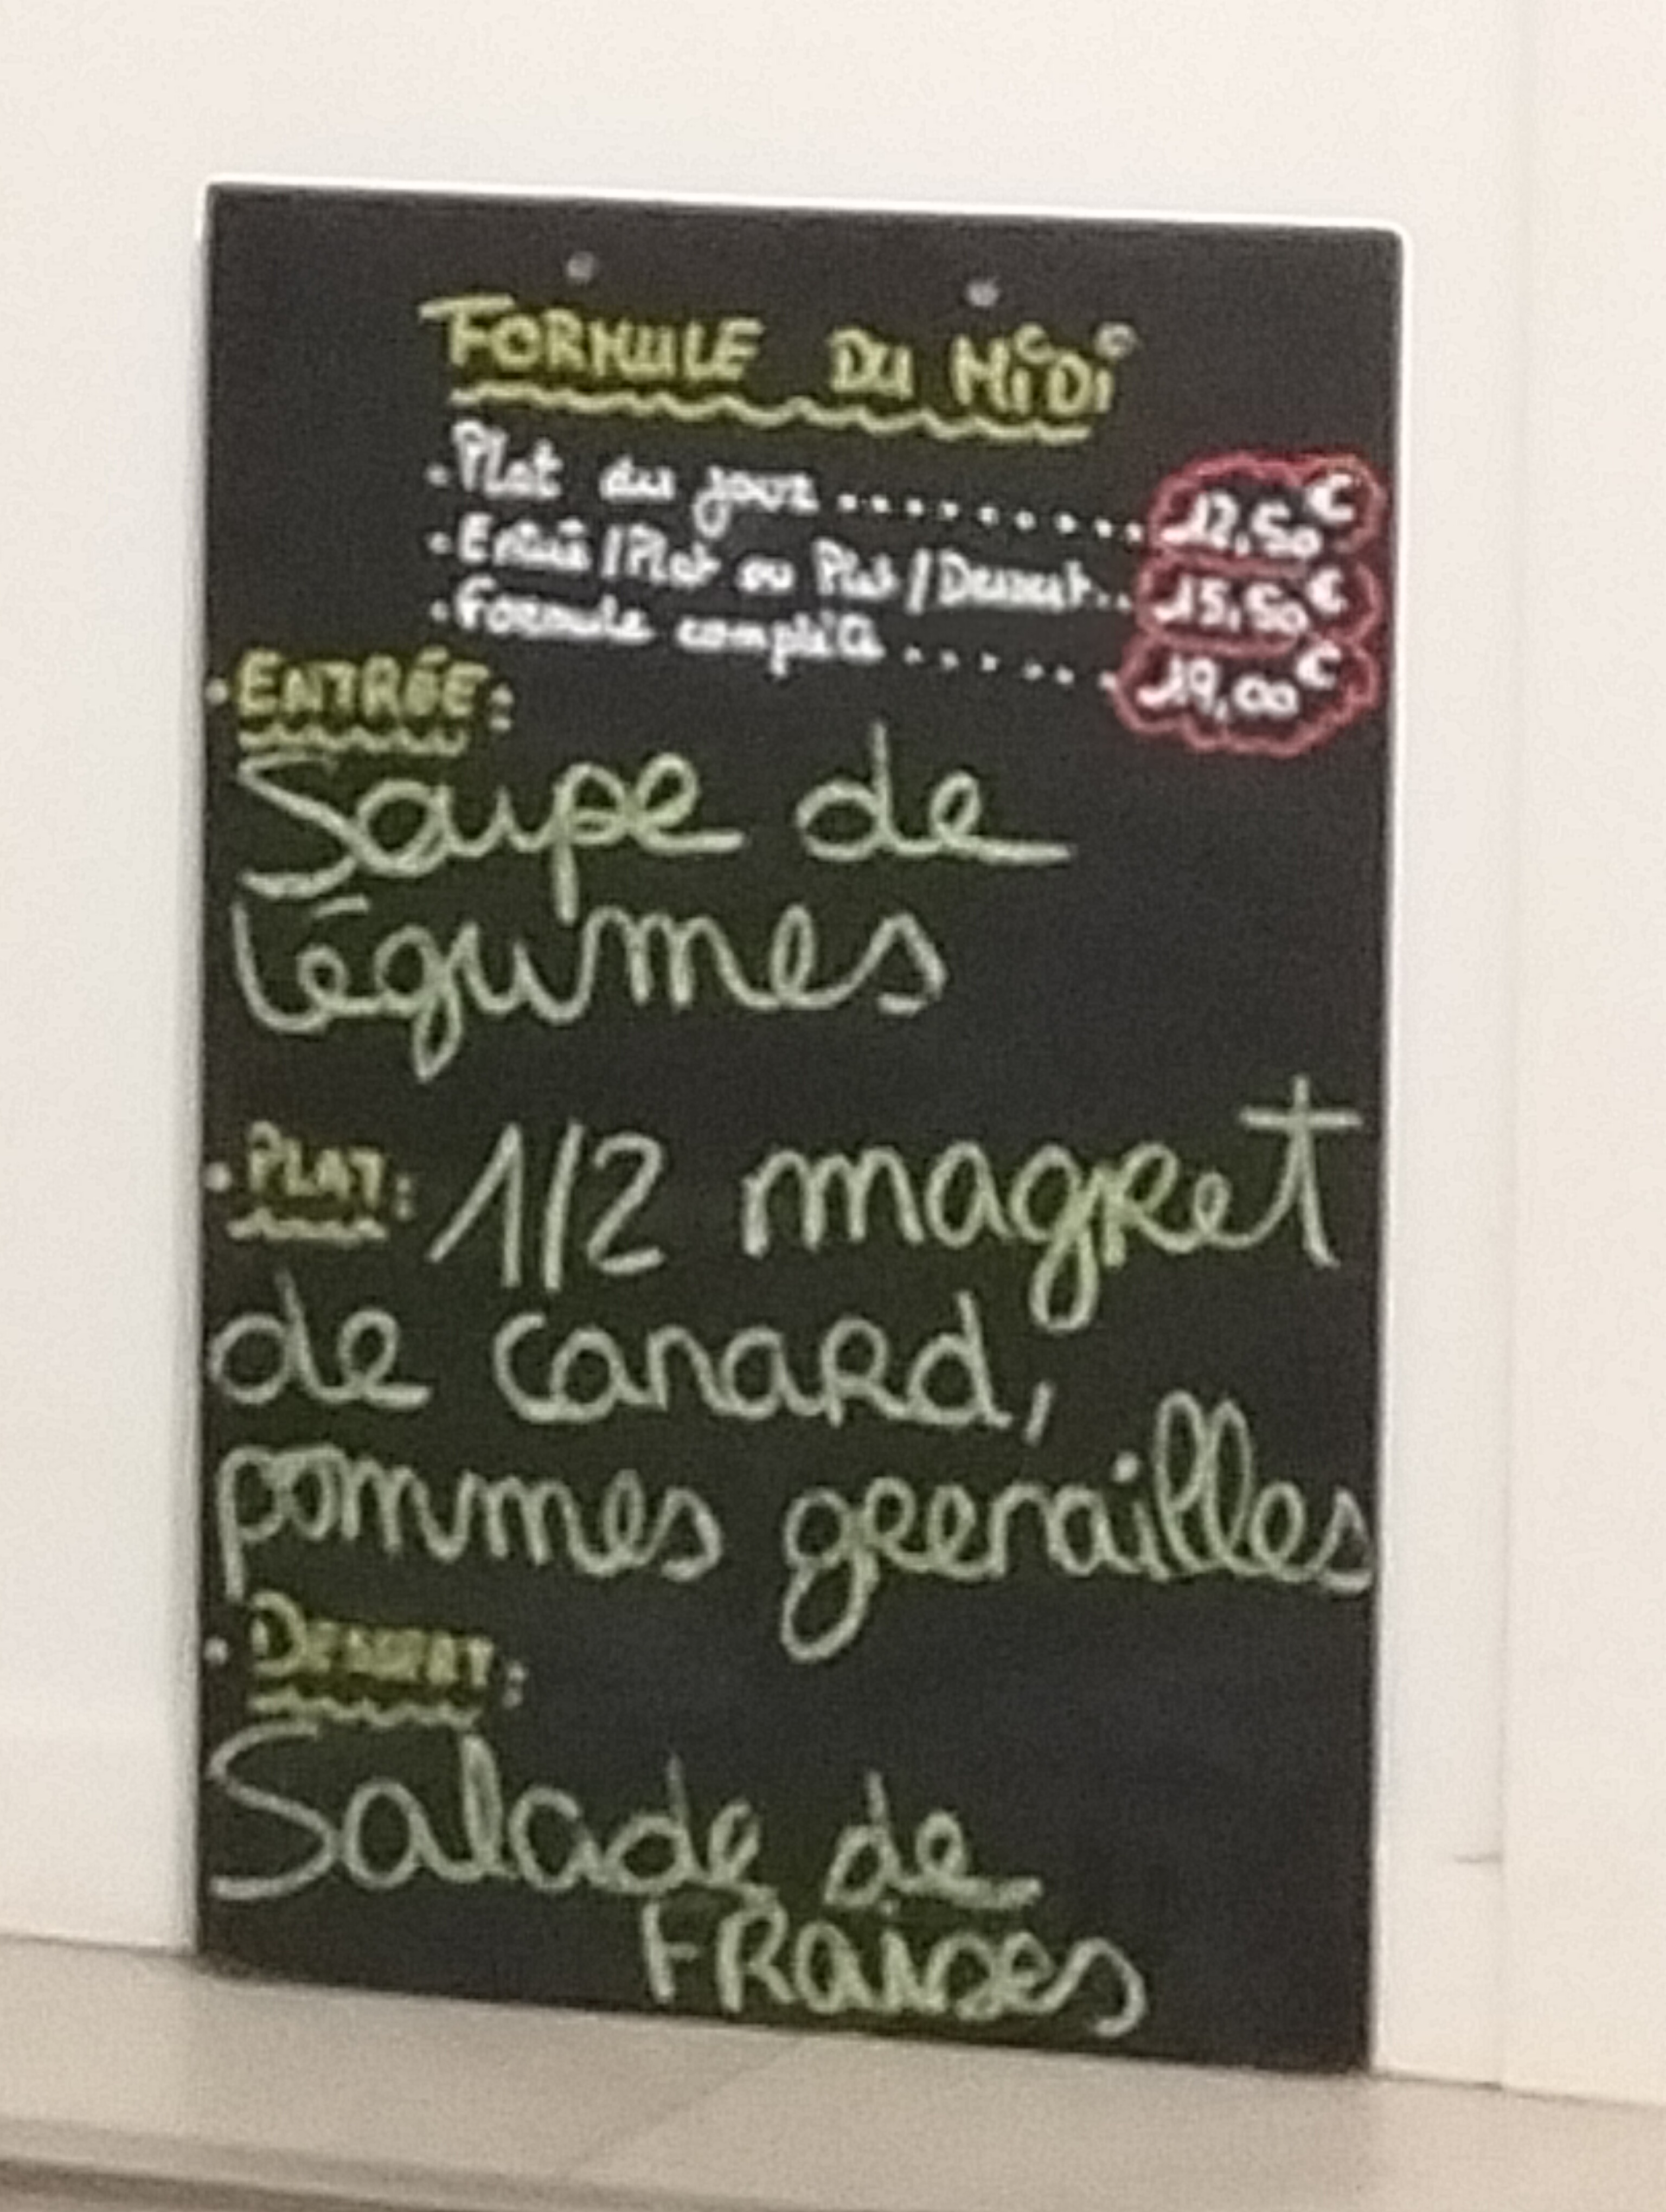 FORMULE DU MiDi
. Plat du jour .......... 12,50€
. Entrée/Plat ou Plat/Dessert.. 15,50€
. Formule complète ....... 19,00€
. ENTRÉE:
Soupe de
Légumes
. PLAT: 1/2 magret
de canard,
pommes greenailles
. DESSERT:
Salade de
FRaises